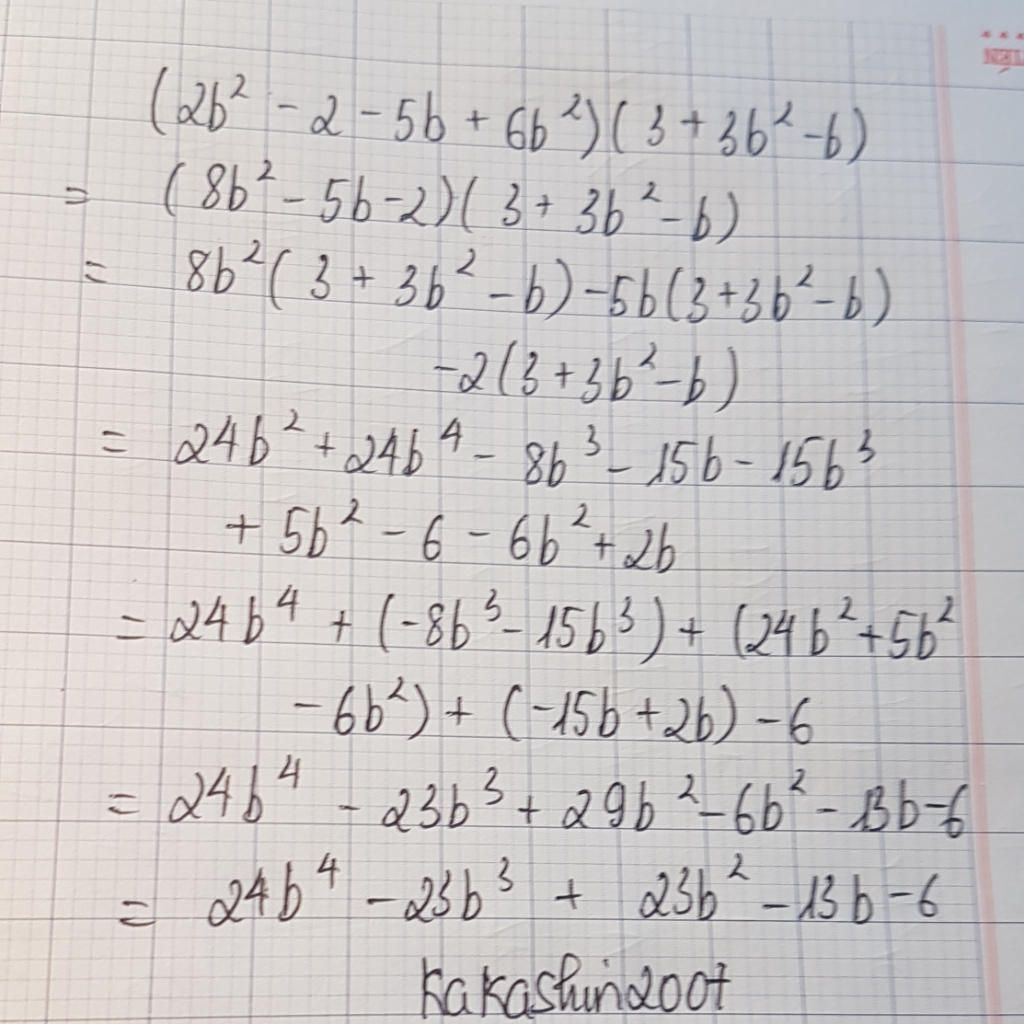 (2b² - 2 - 5b + 6b²)(3 + 3b² - b)
= (8b² - 5b - 2)(3 + 3b² - b)
= 8b²(3 + 3b² - b) - 5b(3 + 3b² - b)
- 2(3 + 3b² - b)
= 24b² + 24b⁴ - 8b³ - 15b - 15b³
+ 5b² - 6 - 6b² + 2b
= 24b⁴ + (-8b³ - 15b³) + (24b² + 5b²
- 6b²) + (-15b + 2b) - 6
= 24b⁴ - 23b³ + 29b² - 6b² - 13b - 6
= 24b⁴ - 23b³ + 23b² - 13b - 6
Kakashin2007